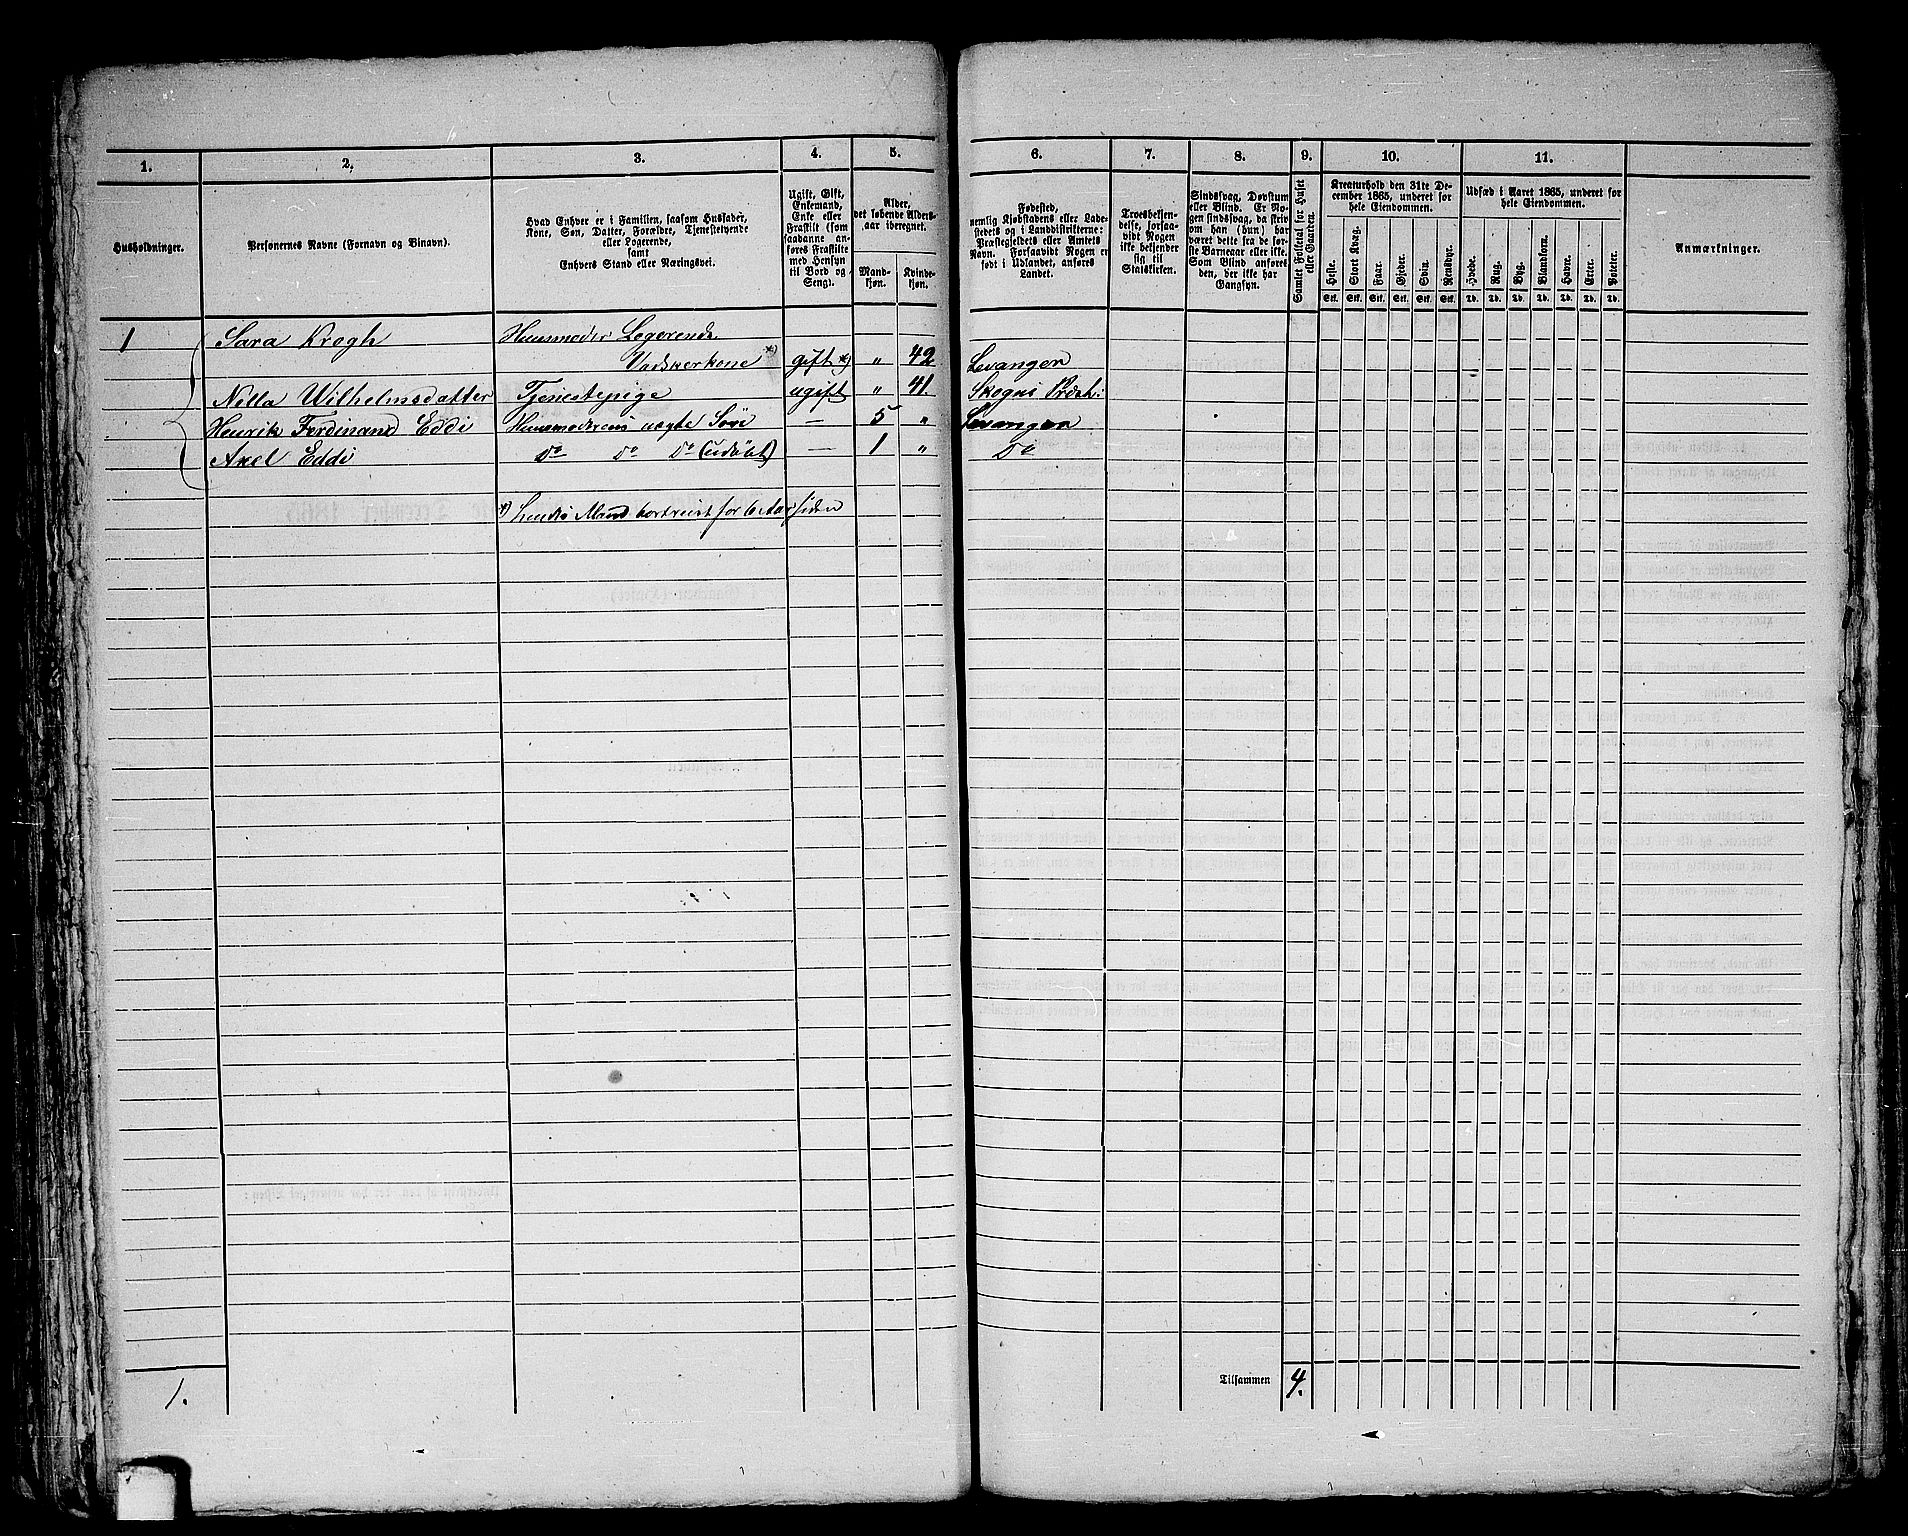 1. 2. 3. 4. 5. 6. 7. 8. 9. 10. 11.
Husholdninger.
Personernes Navne (Fornavn og Binavn).
Hvad Enhver er i Familien, saasom Husfader,
Kone, Søn, Datter, Forældre, Tjenestetyende
eller Logerende,
samt
Enhvers Stand eller Næringsvei.
Ugift, Gift,
Enkemand,
Enke eller
Fraskilt (som
saadanne an-
føres Fraskilte
med Hensyn
til Bord og
Seng).
Alder,
det løbende Alders-
aar iberegnet.
Mand-
kjøn.
Kvinde-
kjøn.
Fødested,
nemlig Kjøbstadens eller Lade-
stedets og i Landdistrikterne:
Præstegjeldets eller Amtets
Navn. Forsaavidt Nogen er
født i Udlandet, anføres
Landet.
Troesbekjen-
delse, forsaa-
vidt Nogen
ikke bekjender
sig til
Statskirken.
Sindssvag, Døvstum
eller Blind. Er No-
gen sindssvag, da skriv
om han (hun) har
været dette fra de før-
ste Barneaar eller ikke.
Som Blind anføres
den, der ikke har
Gangsyn.
Samlet Folketal for Huset
eller Gaarden.
Kreaturhold den 31te De-
cember 1865, underet for
hele Eiendommen.
Heste. Stort Kvæg. Faar. Gjeder. Svin. Rensdyr.
Stk. Stk. Stk. Stk. Stk. Stk.
Udsæd i Aaret 1865, underet for
hele Eiendommen.
Hvede. Rug. Byg. Blandkorn. Havre. Erter. Poteter.
Td. Td. Td. Td. Td. Td. Td.
Anmærkninger.
1 Sara Krogh Huusmoder Logerende
Vadskerkone *) gift *) " 42 Levanger
Nilla Wilhelmsdatter Tjenestepige ugift " 41. Skogns Prdst:
Henrik Ferdinand Eddi Huusmoderens uegte Søn — 5 " Levanger
Axel Eddi Do Do Do (udøbt) — 1 " Do
*) Mand bortreist for 6 Aar siden
1. Tilsammen 4.